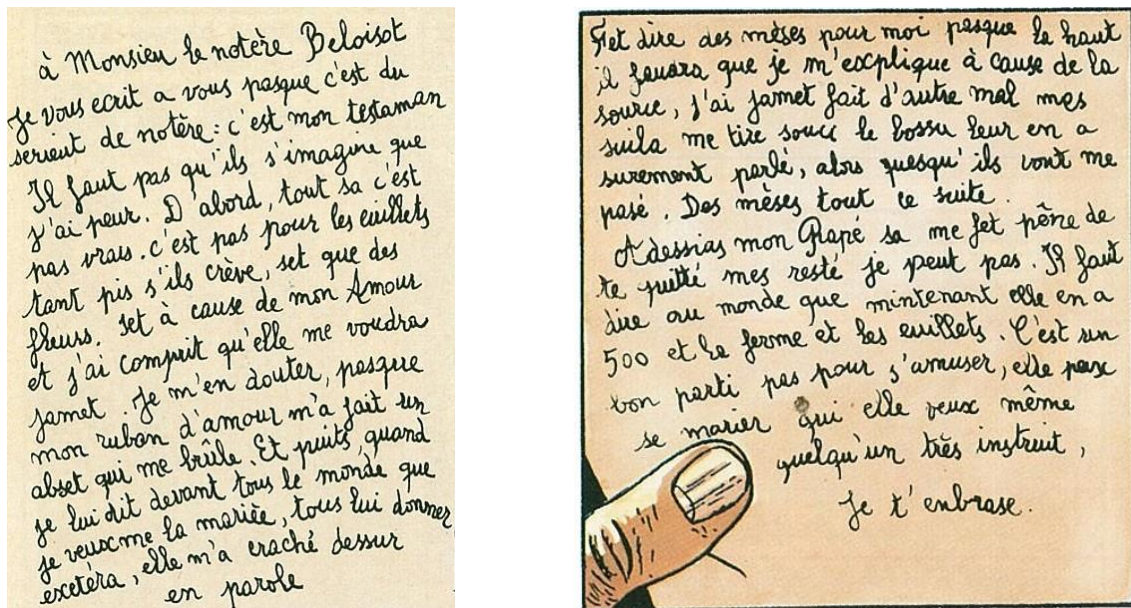 à Monsieu le notère Beloisot
Je vous ecrit a vous pasque c'est du
serieut de notère : c'est mon testaman
Il faut pas qu'ils s'imagine que
j'ai peur. D'abord, tout sa c'est
pas vrais. c'est pas pour les euillets
tant pis s'ils crève, set que des
fleurs. set à cause de mon Amour
et j'ai comprit qu'elle me voudra
jamet. Je m'en douter, pasque
mon ruban d'amour m'a fait un
abset qui me brûle. Et puits, quand
je lui dit devant tous le monde que
je veux me la mariée, tous lui donner
exetéra, elle m'a craché dessur
en parole
Fet dire des mèses pour moi pasque la haut
il feudra que je m'excplique à cause de la
source, j'ai jamet fait d'autre mal mes
suila me tire souci le bossu leur en a
surement parlé, alors quesqu'ils vont me
pasé. Des mèses tout ce suite.
Adessias mon Papé sa me fet pêne de
te quitté mes resté je peut pas. Il faut
dire au monde que mintenant elle en a
500 et la ferme et les euillets. C'est un
bon parti pas pour s'amuser, elle peux
se marier qui elle veux même
quelqu'un très instruit,
Je t'enbrase.